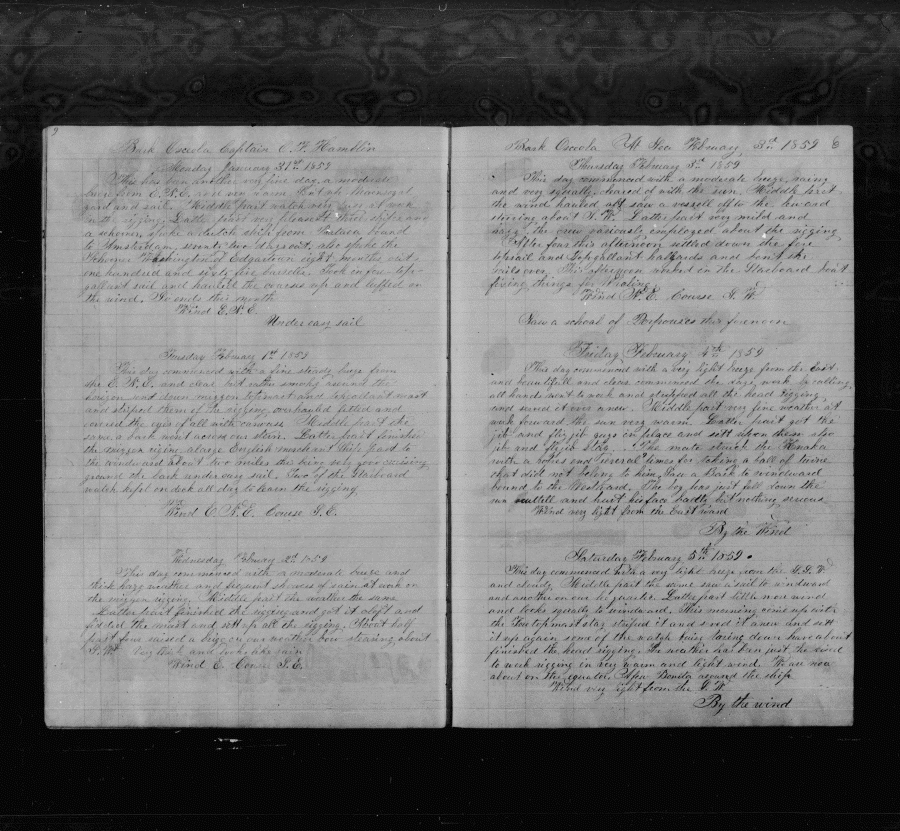 Bark Osceola Captain C. F. Hamblin
Monday January 31st 1859
This has been another very fine day, a moderate
breeze from E.N.E. and very warm. main royal
yard and sail. Middle part watch very busy at work
with rigging. Latter part very pleasant three ships and
a schooner, spoke a dutch ship from Batavia bound
to Amsterdam, seventy two days out, also spoke the
Schooner Washington of Edgartown eight months out,
one hundred and sixty five barrels. Took in fore top-
gallant sail and hauled the courses up and luffed on
the wind. So ends this month
Wind E.N.E.
Under easy sail
Tuesday February 1st 1859
This day commenced with a fine steady breeze from
the E.N.E. and clear but rather smoky around the
horizon sent down mizzen topmast and topgallant mast
and striped them of the rigging, overhauld fitted and
covered the eyes of all with canvass. Middle part the
same, a bark went across our stern. Latter part finished
the mizzen riging a large English merchant ship past to
the windward about two miles the being only good cruising
ground the bark under easy sail. Two of the Starboard
watch kept on deck all day to learn the rigging
Wind E.N.E. Course S.E.
Wednesday February 2d 1859
This day commenced with a moderate breeze and
thick hazy weather and frequent showers of rain at work on
the mizzen rigging. Middle part the weather the same
Latter part finished the rigging and got it aloft and
fidded the mast and sett up all the rigging. About half
past four raised a brig on our weather bow stearing about
S.W. Very thick and looks like rain
Wind E. Course S.E.
Bark Osceola At Sea February 3d 1859 6
Thursday February 3d 1859
This day commenced with a moderate breeze, rainy
and very squally, cleared of with the sun. Middle part
the wind hauled aft saw a vessell off to the leeward
steering about S.W. Latter part very mild and
hazy, the crew variously employed about the rigging
After four this afternoon settled down the fore
topsail and topgallant halyards and bent the
sails over. This afternoon worked on the Starboard boat
fixing things for Whaling.
Wind N.E. Course S.W.
Saw a school of Porpouses this forenoon
Friday February 4th 1859
This day commenced with a very light breeze from the East
and beautifull and clear commenced the days work by calling
all hands went to work and stripped all the head rigging
and served it over anew. Middle part very fine weather at
work forward the sun very warm. Latter part got the
jib and flyjib guys in place and sett upon them also
jib and flyjib stay. The mate struck the Kanaka
with a ropes end several times for taking a ball of twine
that did not belong to him. Saw a Bark to windward
bound to the Westward. The boy has just fell down the
run scuttell and hurt his face badly but nothing serious
Wind very light from the Eastward
By the Wind
Saturday February 5th 1859
This day commenced with a very light breeze from the S.S.W.
and cloudy. Middle part the same saw a sail to windward
and another on our lee quarter. Latter part little more wind
and looks squally to windward. This morning come up with
the Fore topmast stay striped it and served it anew and sett
it up again some of the watch being taring down have about
finished the head rigging. The weather has been just the kind
to work rigging in very warm and light wind. We are now
about on the equator. Bonita around the ship
Wind very light from the S.W.
By the wind